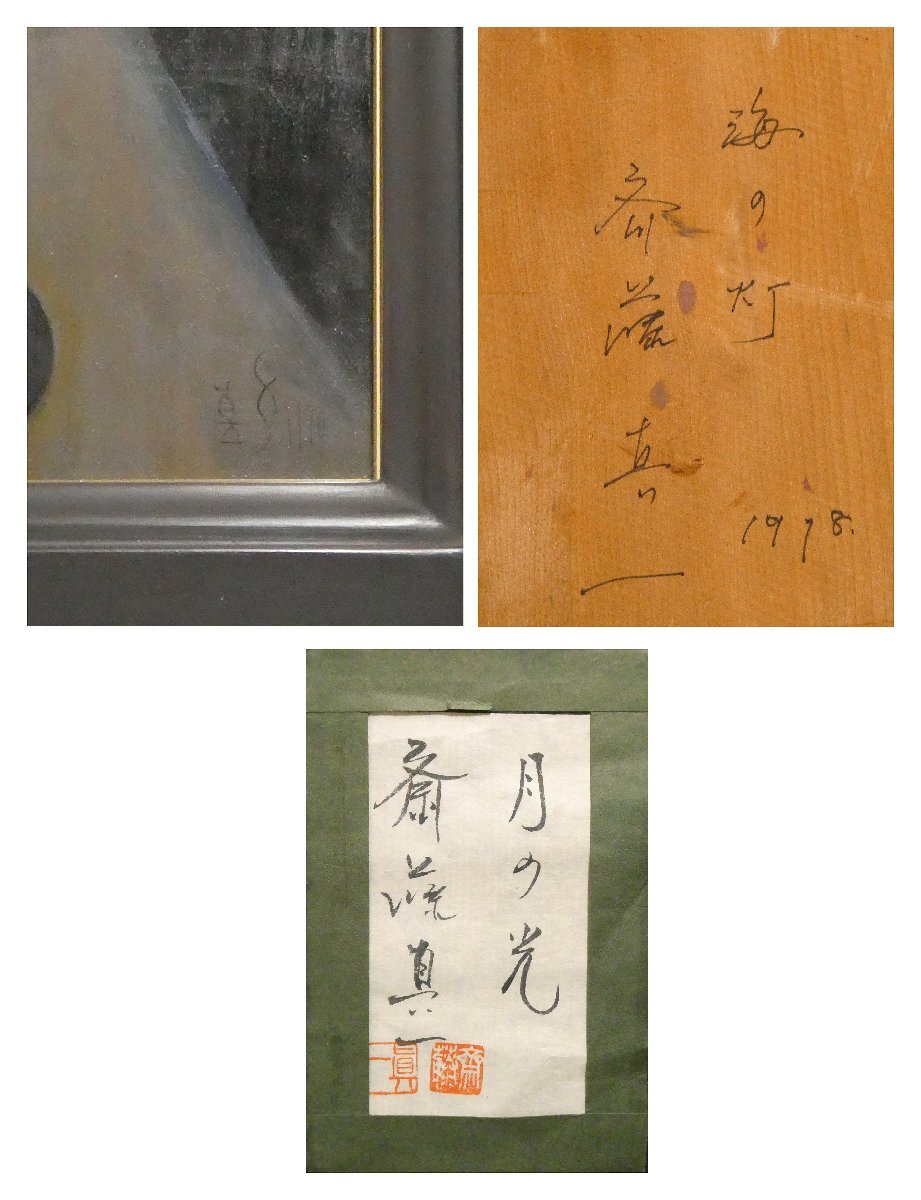 海の灯
斎藤真一
1978.
月の光
斎藤真一
齋藤
真一